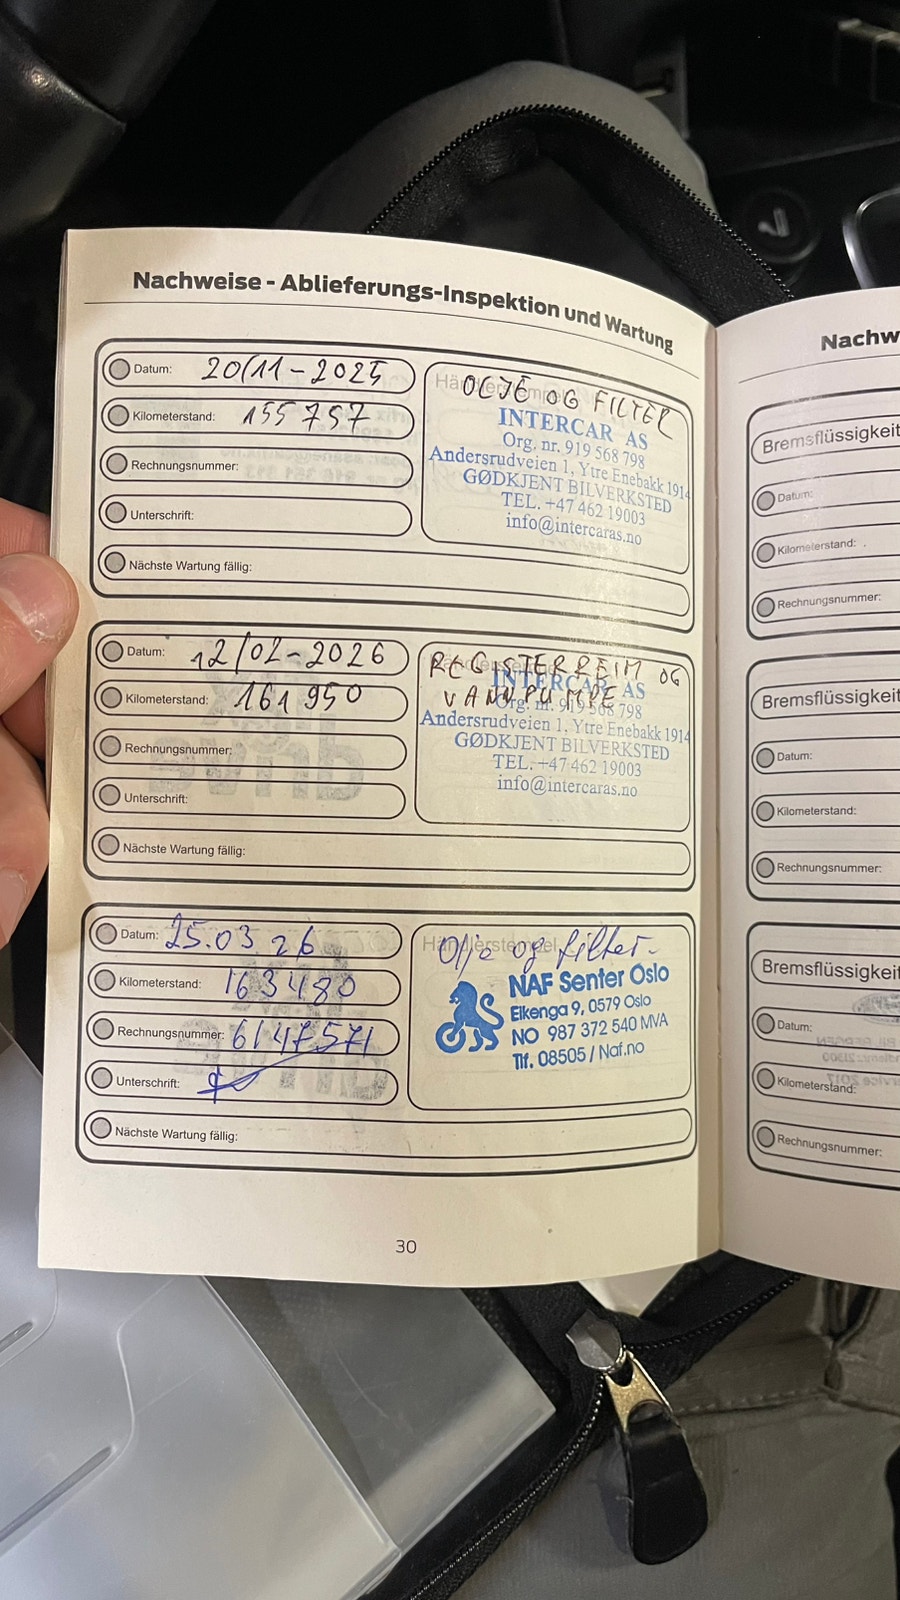 Nachweise - Ablieferungs-Inspektion und Wartung
Datum: 20/11-2025
Kilometerstand: 155 757
Rechnungsnummer:
Unterschrift:
Nächste Wartung fällig:
Händlerstempel
OLJE OG FILTER
INTERCAR AS
Org. nr. 919 568 798
Andersrudveien 1, Ytre Enebakk 1914
GØDKJENT BILVERKSTED
TEL. +47 462 19003
info@intercaras.no
Datum: 12/02-2026
Kilometerstand: 161 950
Rechnungsnummer:
Unterschrift:
Nächste Wartung fällig:
REGISTERREIM OG
VANNPUMPE
INTERCAR AS
Org. nr. 919 568 798
Andersrudveien 1, Ytre Enebakk 1914
GØDKJENT BILVERKSTED
TEL. +47 462 19003
info@intercaras.no
Datum: 25.03 26
Kilometerstand: 163480
Rechnungsnummer: 6147571
Unterschrift:
Nächste Wartung fällig:
Händlerstempel
Olje og filter.
NAF Senter Oslo
Eikenga 9, 0579 Oslo
NO 987 372 540 MVA
Tlf. 08505 / Naf.no
30
Nachw
Bremsflüssigkeit
Datum:
Kilometerstand:
Rechnungsnummer:
Bremsflüssigkeit
Datum:
Kilometerstand:
Rechnungsnummer:
Bremsflüssigkeit
Datum:
Kilometerstand:
Rechnungsnummer: